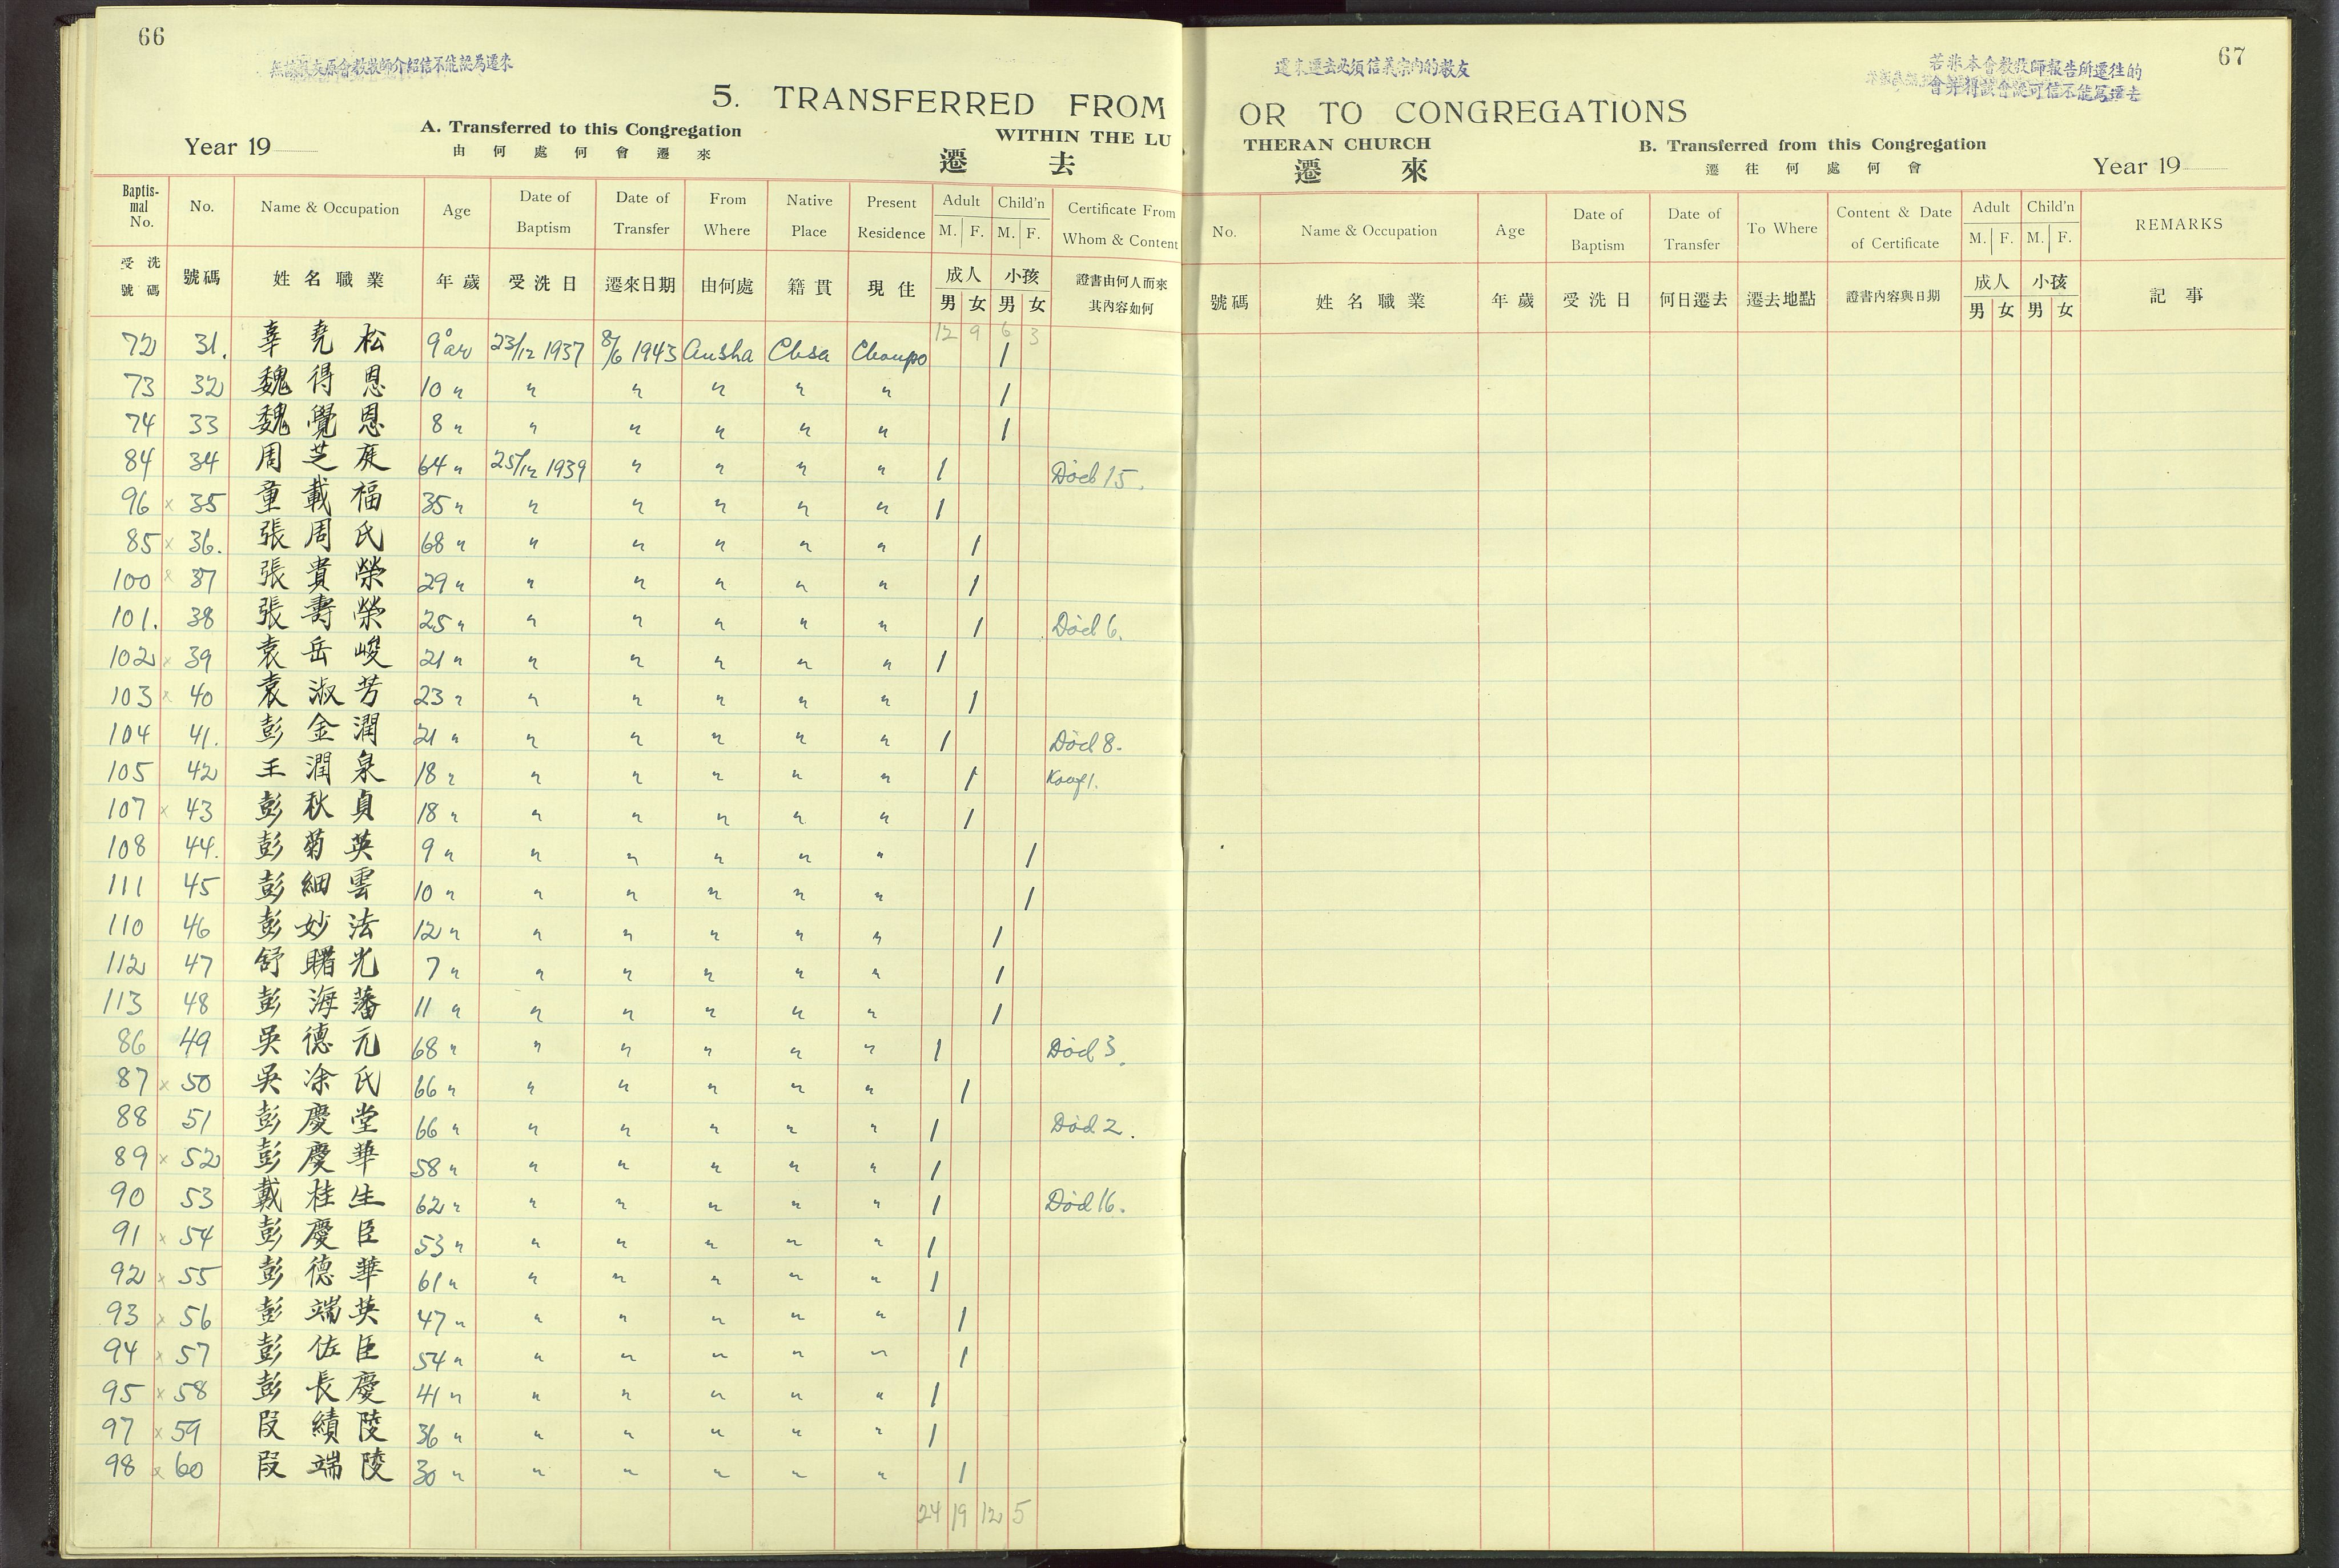 66
無該教友原會教牧師介紹信不能認為遷來
5. TRANSFERRED FROM
A. Transferred to this Congregation
WITHIN THE LU
Year 19
由何處何會遷來
遷去
Baptismal No. No. Name & Occupation Age Date of Baptism Date of Transfer From Where Native Place Present Residence Adult M. F. Child'n M. F. Certificate From Whom & Content
受洗號碼 號碼 姓名職業 年歲 受洗日 遷來日期 由何處 籍貫 現住 成人 男 女 小孩 男 女 證書由何人而來其內容如何
12 9 6 3
72 31. 辜堯松 9 år 23/12 1937 8/6 1943 Ansha Chsa Choupo 1
73 32 魏得恩 10 " " " " " " 1
74 33 魏覺恩 8 " " " " " " 1
84 34 周芝庭 64 " 25/12 1939 " " " " 1 Död 15.
96 × 35 童載福 35 " " " " " " 1
85 × 36. 張周氏 68 " " " " " " 1
100 × 37 張貴榮 29 " " " " " " 1
101. 38 張壽榮 25 " " " " " " 1 Död 6.
102 × 39 袁岳峻 21 " " " " " " 1
103 × 40 袁淑芳 23 " " " " " " 1
104 41. 彭金潤 21 " " " " " " 1 Död 8.
105 42 王潤泉 18 " " " " " " 1
107 × 43 彭秋貞 18 " " " " " " 1
108 44. 彭菊英 9 " " " " " " 1
111 45 彭細雲 10 " " " " " " 1
110 46 彭妙法 12 " " " " " " 1
112 47 舒曙光 7 " " " " " " 1
113 48 彭海藩 11 " " " " " " 1
86 49 吳德元 68 " " " " " " 1 Död 3.
87 × 50 吳涂氏 66 " " " " " " 1
88 51 彭慶堂 66 " " " " " " 1 Död 2.
89 × 52 彭慶華 58 " " " " " " 1
90 53 戴桂生 62 " " " " " " 1 Död 16.
91 × 54 彭慶臣 53 " " " " " " 1
92 × 55 彭德華 61 " " " " " " 1
93 × 56 彭端英 47 " " " " " " 1
94 × 57 彭佐臣 54 " " " " " " 1
95 × 58 彭長慶 41 " " " " " " 1
97 × 59 段績陵 36 " " " " " " 1
98 × 60 段端陵 30 " " " " " " 1
24 19 12 5
67
遷來遷去必須信義宗內的教友
若非本會教牧師報告所遷往的
會並得該會認可信不能寫遷去
OR TO CONGREGATIONS
THERAN CHURCH
B. Transferred from this Congregation
遷來
遷往何處何會
Year 19
No. Name & Occupation Age Date of Baptism Date of Transfer To Where Content & Date of Certificate Adult M. F. Child'n M. F. REMARKS
號碼 姓名職業 年歲 受洗日 何日遷去 遷去地點 證書內容與日期 成人 男 女 小孩 男 女 記事